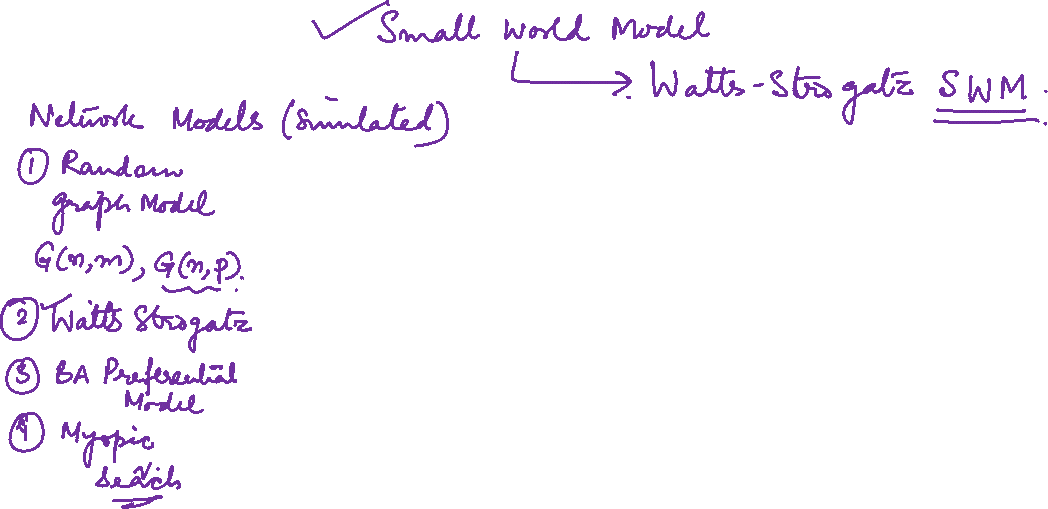 ✓ Small World Model
→ Watts-Strogatz SWM.
Network Models (Simulated)
① Random
graph Model
G(n,m), G(n,p).
② Watts Strogatz
③ BA Preferential
Model
④ Myopic
Search